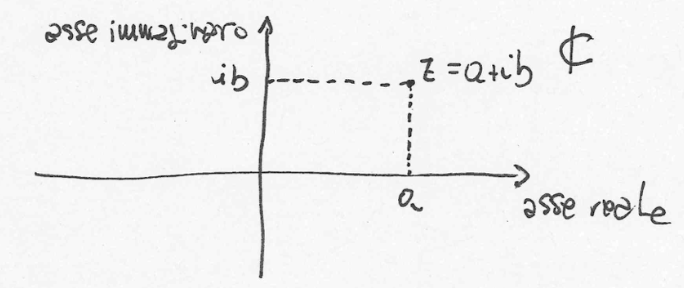 asse immaginaro
ib
z = a+ib
ℂ
a
asse reale